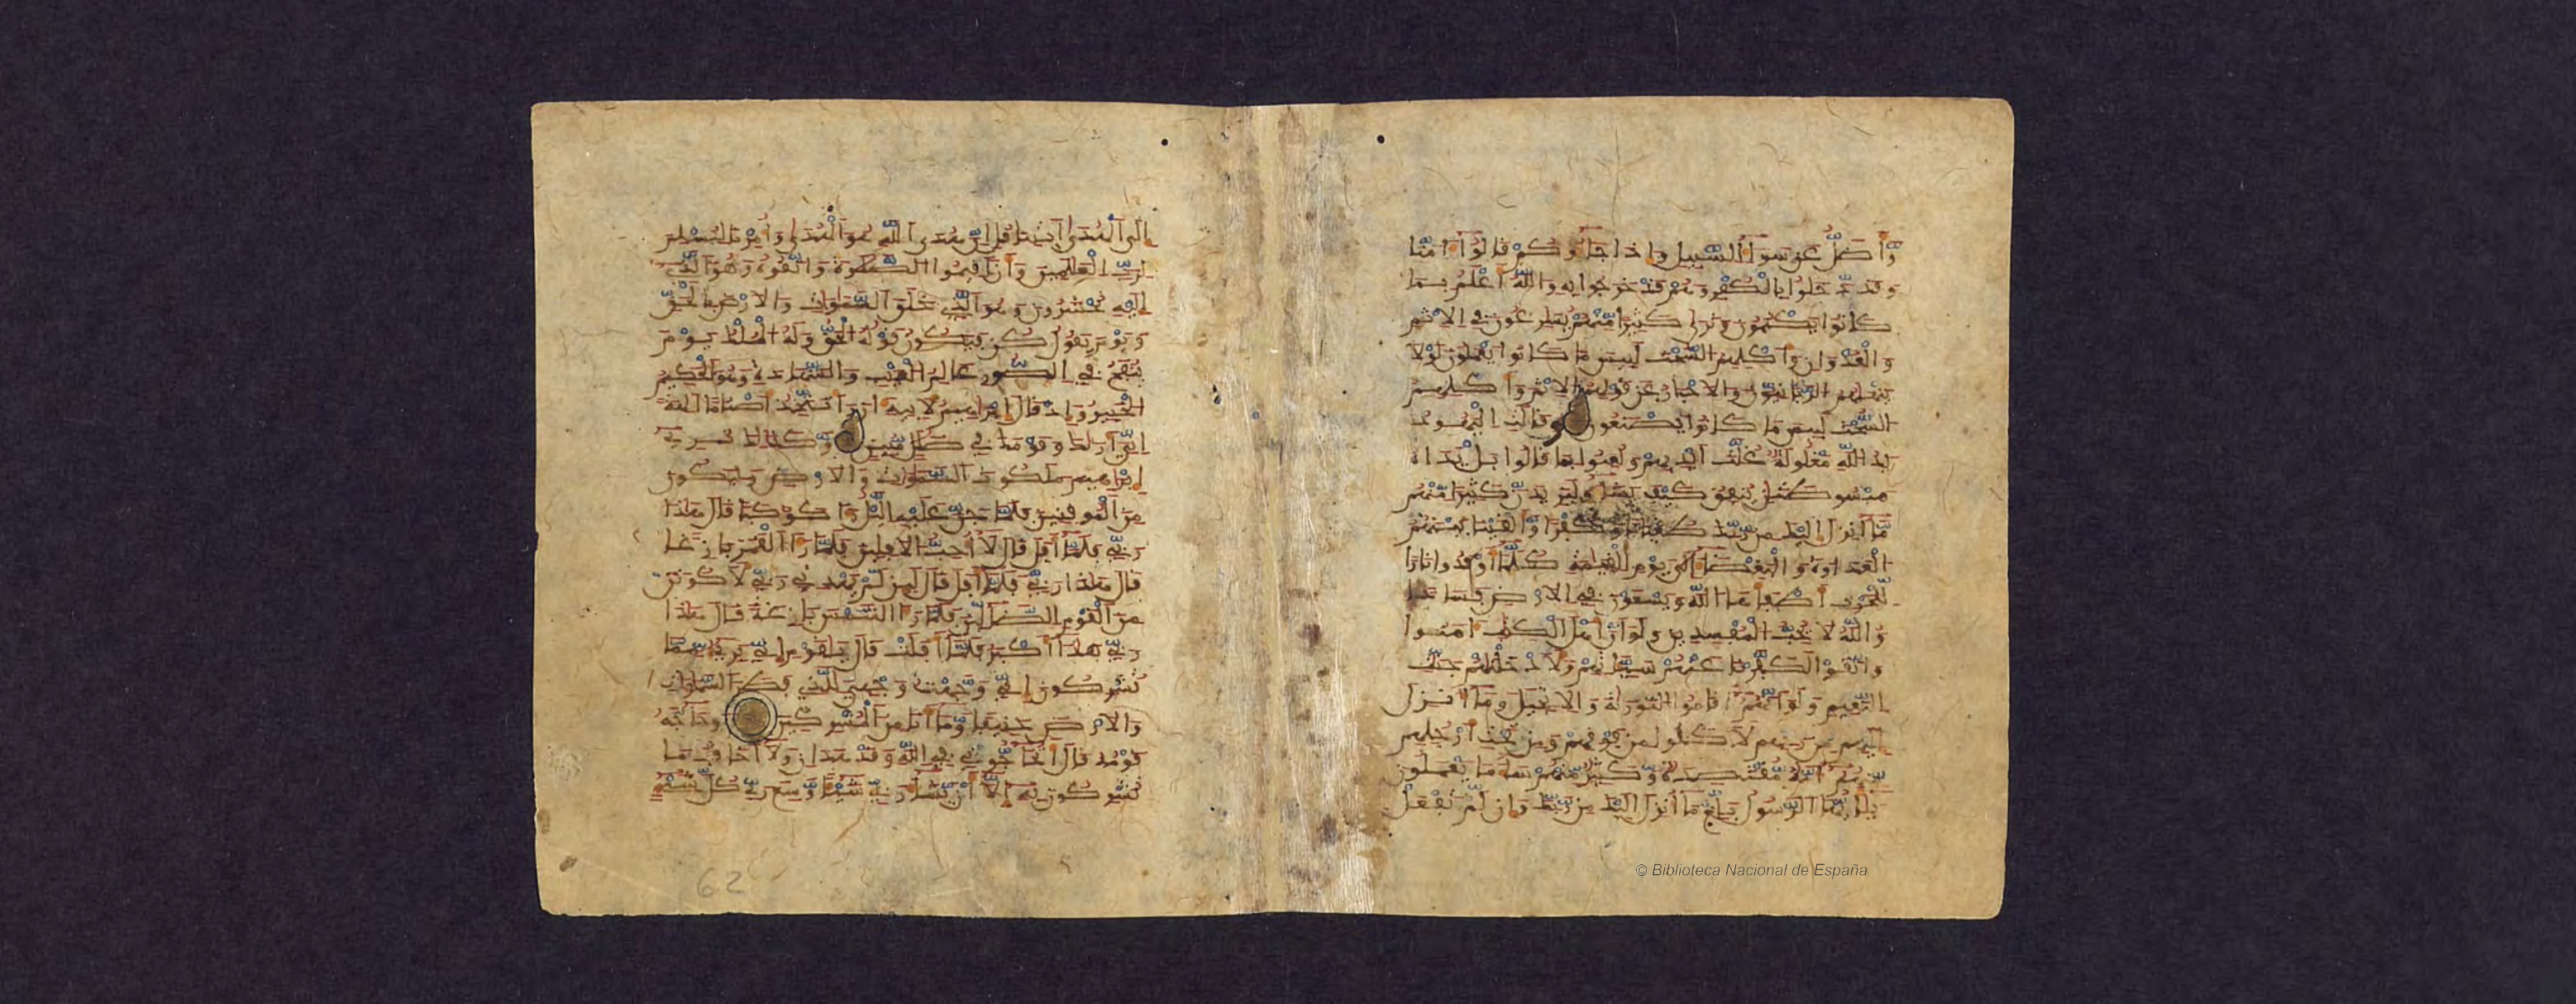 وأضل عن سواء السبيل وإذا جاءوكم قالوا ءامنا
وقد دخلوا بالكفر وهم قد خرجوا به والله أعلم بما
كانوا يكتمون وترى كثيرا منهم يسرعون في الإثم
والعدوان وأكلهم السحت لبيس ما كانوا يعملون لولا
ينهيهم الربنيون والأحبار عن قولهم الإثم وأكلهم
السحت لبيس ما كانوا يصنعون وقالت اليهود
يد الله مغلولة غلت أيديهم ولعنوا بما قالوا بل يداه
مبسوطتن ينفق كيف يشاء وليزيدن كثيرا منهم
ما أنزل إليك من ربك طغينا وكفرا وألقينا بينهم
العداوة والبغضاء إلى يوم القيمة كلما أوقدوا نارا
للحرب أطفأها الله ويسعون في الأرض فسادا
والله لا يحب المفسدين ولو أن أهل الكتب ءامنوا
واتقوا لكفرنا عنهم سيئاتهم ولأدخلنهم جنت
النعيم ولو أنهم أقاموا التورية والإنجيل وما أنزل
إليهم من ربهم لأكلوا من فوقهم ومن تحت أرجلهم
منهم أمة مقتصدة وكثير منهم ساء ما يعملون
يأيها الرسول بلغ ما أنزل إليك من ربك وإن لم تفعل
© Biblioteca Nacional de España
إلى الهدى ايتنا قل إن هدى الله هو الهدى وأمرنا لنسلم
لرب العلمين وأن أقيموا الصلوة واتقوه وهو الذي
إليه تحشرون وهو الذي خلق السموت والأرض بالحق
ويوم يقول كن فيكون قوله الحق وله الملك يوم
ينفخ في الصور علم الغيب والشهدة وهو الحكيم
الخبير وإذ قال إبرهيم لأبيه ءازر أتتخذ أصناما ءالهة
إني أريك وقومك في ضلل مبين وكذلك نري
إبرهيم ملكوت السموت والأرض وليكون
من الموقنين فلما جن عليه اليل رءا كوكبا قال هذا
ربي فلما أفل قال لا أحب الأفلين فلما رءا القمر بازغا
قال هذا ربي فلما أفل قال لين لم يهدني ربي لأكونن
من القوم الضالين فلما رءا الشمس بازغة قال هذا
ربي هذا أكبر فلما أفلت قال يقوم إني بريء مما
تشركون إني وجهت وجهي للذي فطر السموت
والأرض حنيفا وما أنا من المشركين وحاجه
قومه قال أتحجوني في الله وقد هدان ولا أخاف ما
تشركون به إلا أن يشاء ربي شيئا وسع ربي كل شيء
62